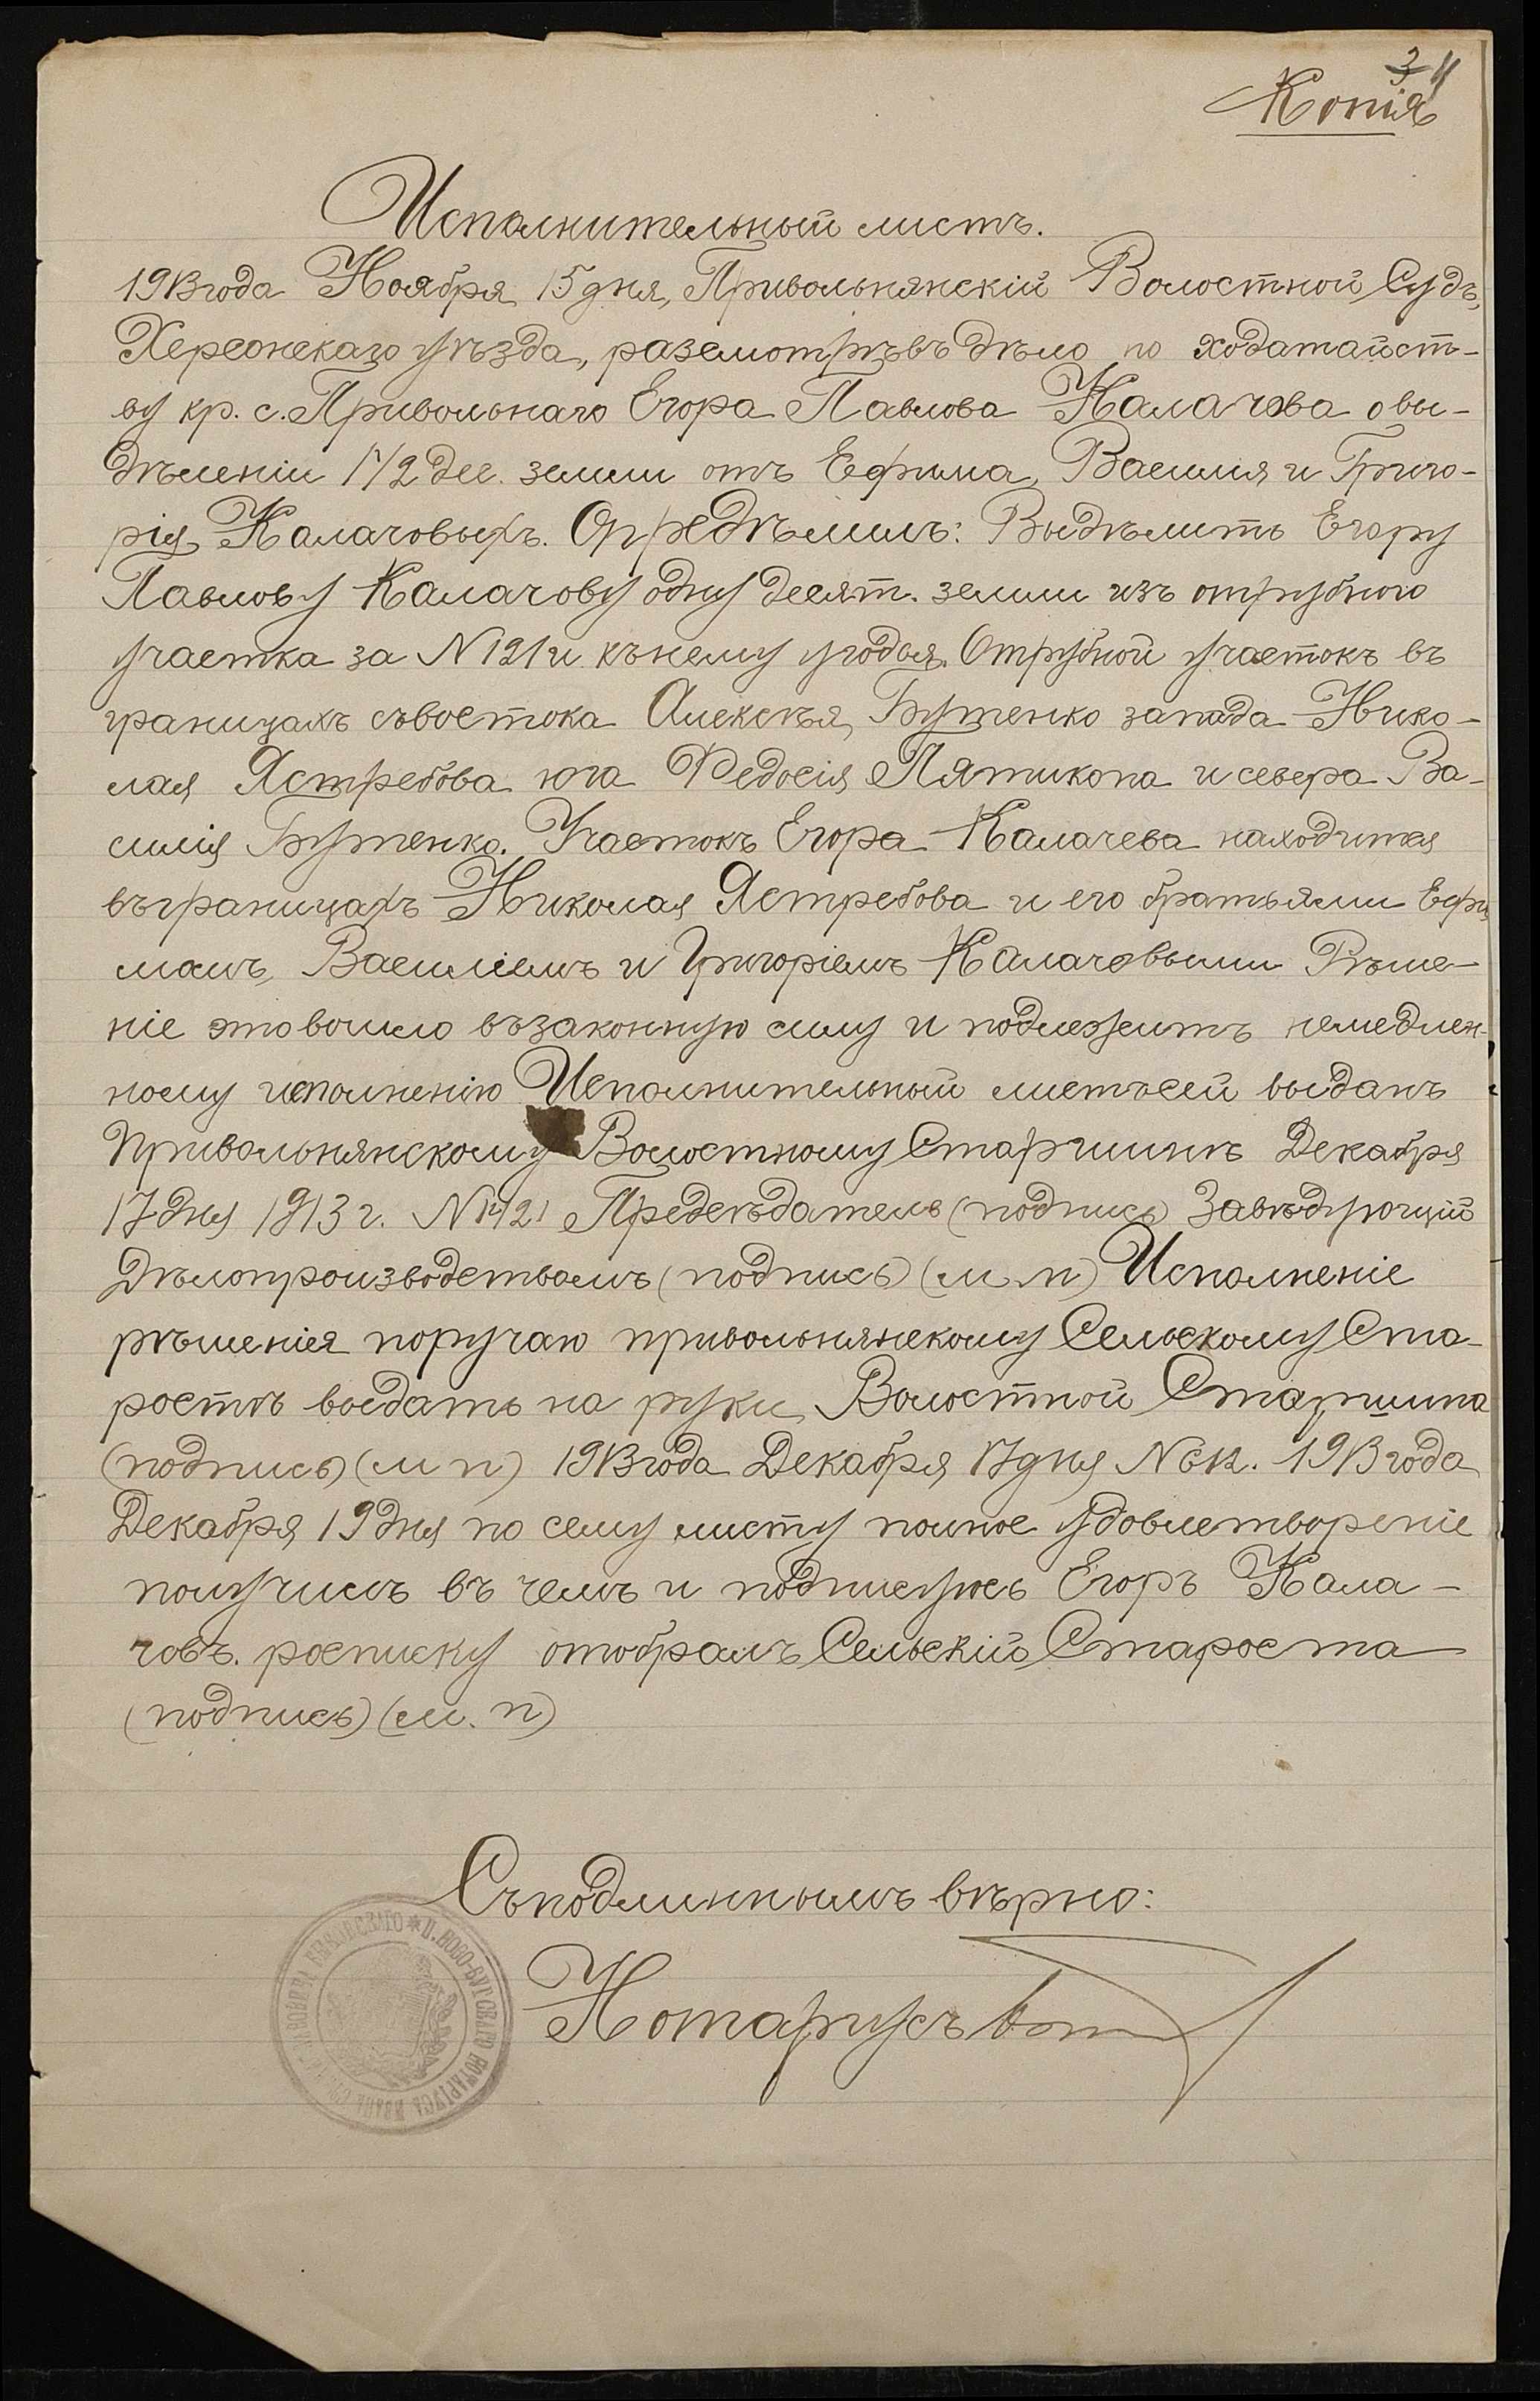 3 4
Копія
Исполнительный листъ.
1913 года Ноября 15 дня, Привольнянскій Волостной Судъ,
Херсонскаго уѣзда, разсмотрѣвъ дѣло по ходатайст-
ву кр. с. Привольнаго Егора Павлова Калачова о вы-
дѣленіи 1 1/2 дес. земли отъ Ефима, Василія и Григо-
рія Калачовыхъ. Опредѣлилъ: Выдѣлить Егору
Павлову Калачову одну десят. земли изъ отрубного
участка за N 121 и къ нему угодья. Отрубной участокъ въ
границахъ съ востока Алексѣя Бутенко запада Нико-
лая Ястребова юга Федосія Пятикопа и севера Ва-
силія Бутенко. Участокъ Егора Калачева находится
въ границахъ Николая Ястребова и его братьями Ефи
момъ, Василіемъ и Григоріемъ Калачовыми Рѣше-
ніе это вошло въ законную силу и подлежитъ немедлен-
ному исполненію Исполнительный листъ сей выданъ
Привольнянскому Волостному Старшинѣ Декабря
17 дня 1913 г. N 1421 Предсѣдатель (подпись) Завѣдующій
Дѣлопроизводствомъ (подпись) (м п) Исполненіе
рѣшенія поручаю привольнянскому Сельскому Ста-
ростѣ выдать на руки Волостной Старшина
(подпись) (м п) 1913 года Декабря 17 дня N 1913 года
Декабря 19 дня по сему листу полное удовлетвореніе
получилъ въ чемъ и подписуюсь Егоръ Кала-
човъ. росписку отобралъ Сельскій Староста
(подпись) (м. п)
Съ подлиннымъ вѣрно:
Нотаріусъ
П. НОВО-БУГСКАГО НОТАРІУСА ИВАНА